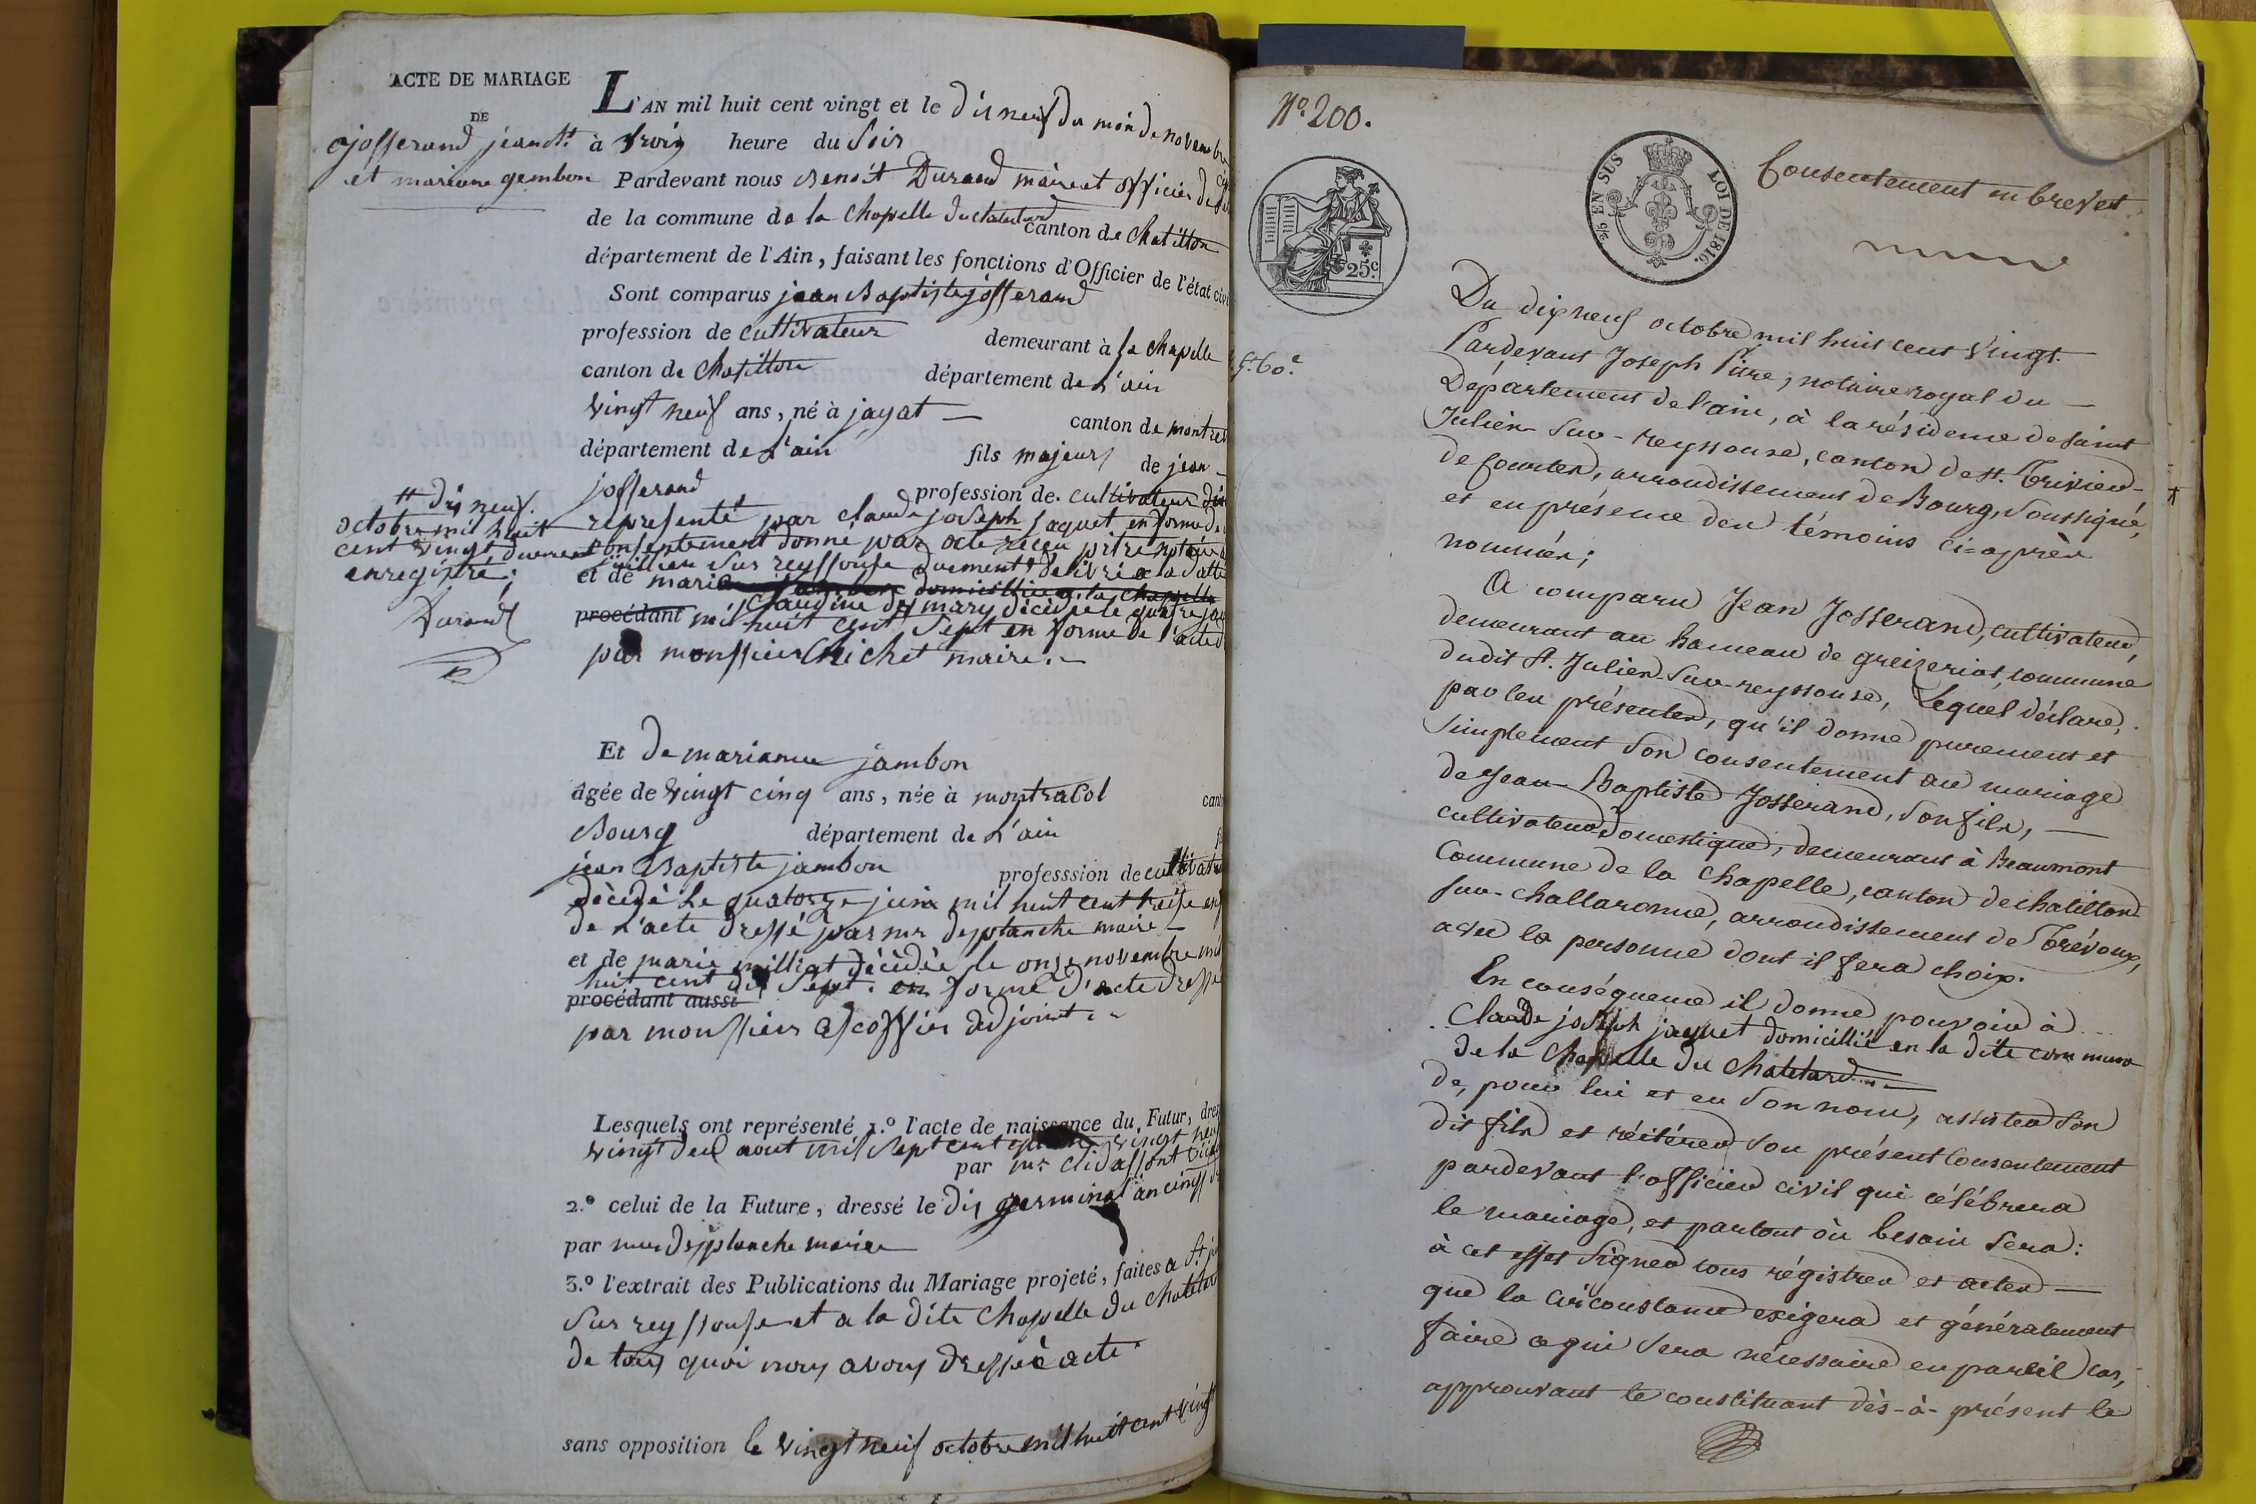 ACTE DE MARIAGE
DE
josserand jean Bte
et mariane gembon
L'AN mil huit cent vingt et le dix neuf du mois de novembre
à trois heure du soir
Pardevant nous Benoît Durand maire et officier de
de la commune de la chapelle du chatelard canton de chatillon
département de l'Ain, faisant les fonctions d'Officier de l'état civi
Sont comparus jean Baptiste josserand
profession de cultivateur demeurant à la chapelle
canton de chatillon département de L'ain
vingt neuf ans, né à jayat canton de montrev
département de L'ain fils majeur de jean
josserand profession de cultivateur
représenté par claude joseph jaquet en forme de
consentement donné par acte reçeu pitre notaire a
juillien sur reyssouse duement délivré a la datte
et de marie domicilliée a la chapelle
claudine des mary décédée le quatre jan
procédant mil huit cent sept en forme de l'acte d
par monssieur Chichet maire.
dix neuf
octobre mil huit
cent vingt duement
enregistré;
Durand
Et de marianne jambon
âgée de vingt cinq ans, née à montracol can
Bourg département de L'ain
jean Baptiste jambon professsion de cultivate
décédé Le quatorze juin mil huit cent treize en f
de l'acte dressé par mr desplanche maire
et de marie milliat décédée le onze novembre mil
huit cent dix sept. en forme d'acte dressé
procédant aussi
par monssieur Escoffier adjoint.
Lesquels ont représenté 1.º l'acte de naissance du Futur, dres
vingt deux aout mil sept cent vingt neuf
par mr
2.º celui de la Future, dressé le dix germinal an cinq
par mr desplanche maire
3.º l'extrait des Publications du Mariage projeté, faites a St ju
sur reyssouse et a la dite chapelle du chatelar
de tous quoi nous avons dressé acte.
sans opposition le vingt neuf octobre mil huit cent vingt
Nº. 200.
25c.
EN SUS
LOI DE 1816.
Consentement en brevet
Du dix neuf octobre mil huit cent vingt.
Pardevant Joseph Pitre, notaire royal du
Département de l'ain, à la résidence de saint
Julien-sur-reyssouse, canton de st. Trivier-
de courtes, arrondissement de Bourg, soussigné,
et en présence des témoins ci-après
nommés;
A comparu Jean Josserand, cultivateur,
demeurant au hameau de greizeriat, commune
dudit st. Julien-sur-reyssouse, Lequel déclare,
par les présentes, qu'il donne purement et
simplement son consentement au mariage
de Jean-Baptiste Josserand, son fils,
cultivateur domestique, demeurant à Beaumont
Commune de la chapelle, canton de chatillon
sur-challaronne, arrondissement de Trévoux,
avec la personne dont il fera choix.
En conséquence il donne pouvoir à
claude joseph jaquet domicillié en la dite commune
de la chapelle du chatelard
de, pour lui et en son nom, assister son
dit fils et réitérer son présent consentement
pardevant l'officier civil qui célébrera
le mariage, et partout où besoin sera:
à cet effet signer tous régistres et actes
que la circonstance exigera et généralement
faire ce qui sera nécessaire en pareil cas,
approuvant le constituant dès-à-présent le